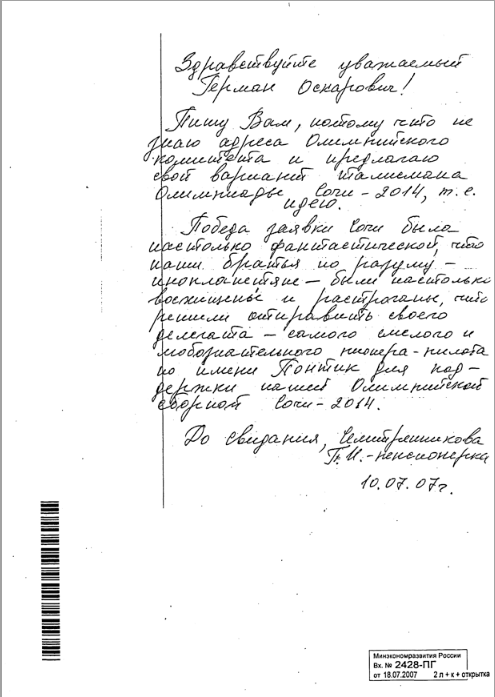 Здравствуйте уважаемый
Герман Оскарович!
Пишу Вам, потому что не
знаю адреса Олимпийского
комитета и предлагаю
свой вариант талисмана
Олимпиады Сочи-2014, т.е.
идею.
Победа заявки Сочи была
настолько фантастической, что
наши братья по разуму –
инопланетяне – были настолько
восхищены и растроганы, что
решили отправить своего
делегата – самого смелого и
любознательного пионера-пилота
по имени Понтик для под-
держки нашей Олимпийской
сборной Сочи-2014.
До свидания,
П.И.-пенсионерка
10.07.07г.
Минэкономразвития России
Вх. № 2428-ПГ
от 18.07.2007 2 л + к + открытка